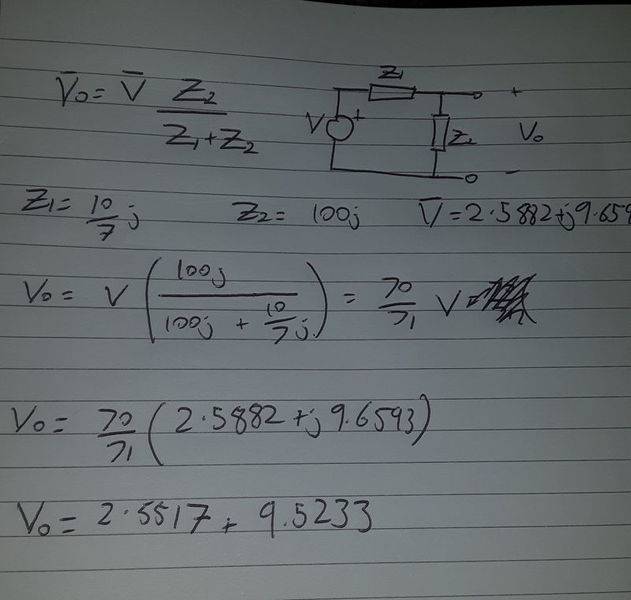 V̄o = V̄ Z2 / (Z1 + Z2)
Z1
V
+
Z2
+
Vo
-
Z1 = 10/7 j Z2 = 100j V̄ = 2.5882 + j9.659
Vo = V (100j / (100j + 10/7 j)) = 70/71 V
Vo = 70/71 (2.5882 + j 9.6593)
Vo = 2.5517 + 9.5233